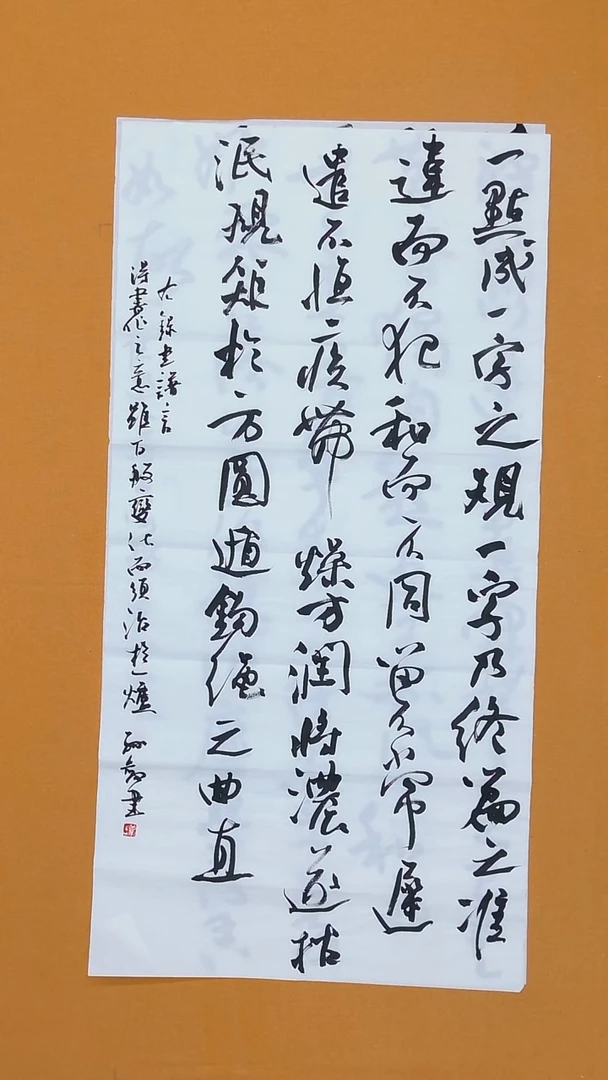 一點成一字之規一字乃終篇之准
違而不犯和而不同留不常遲
遣不恒疾帶燥方潤將濃遂枯
泯規矩於方圓遁鉤繩之曲直
右錄書譜言
得書作之意雖百般變化而須冶於一爐 書